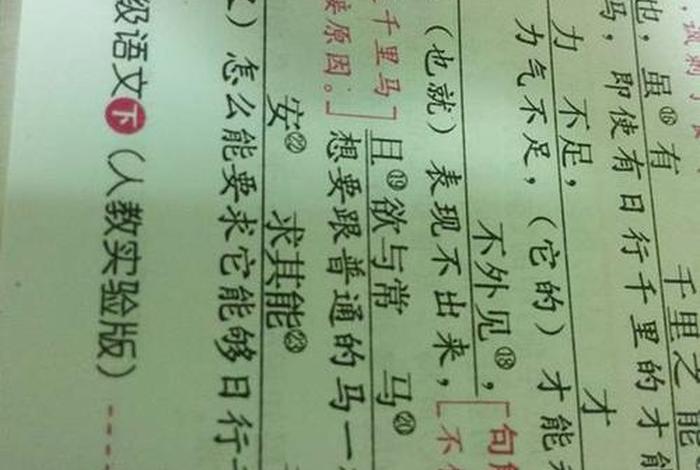 也，虽⑯有 千里之能
马，即使有日行千里的才能
力 不足， 才
力气不足，（它的）才能
不外见⑱，［句
（也就）表现不出来，［不
千里马］且⑲欲与常 马⑳
接原因。］想要跟普通的马一
安㉒ 求其能㉓
）怎么能要求它能够日行
级语文下（人教实验版）